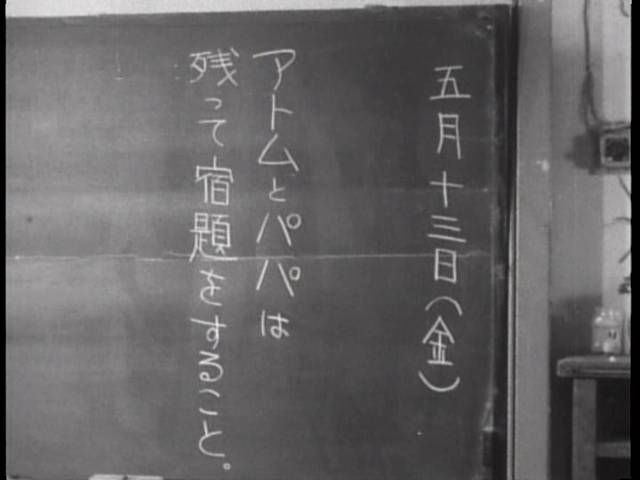 五月十三日(金)
アトムとパパは
残って宿題をすること。